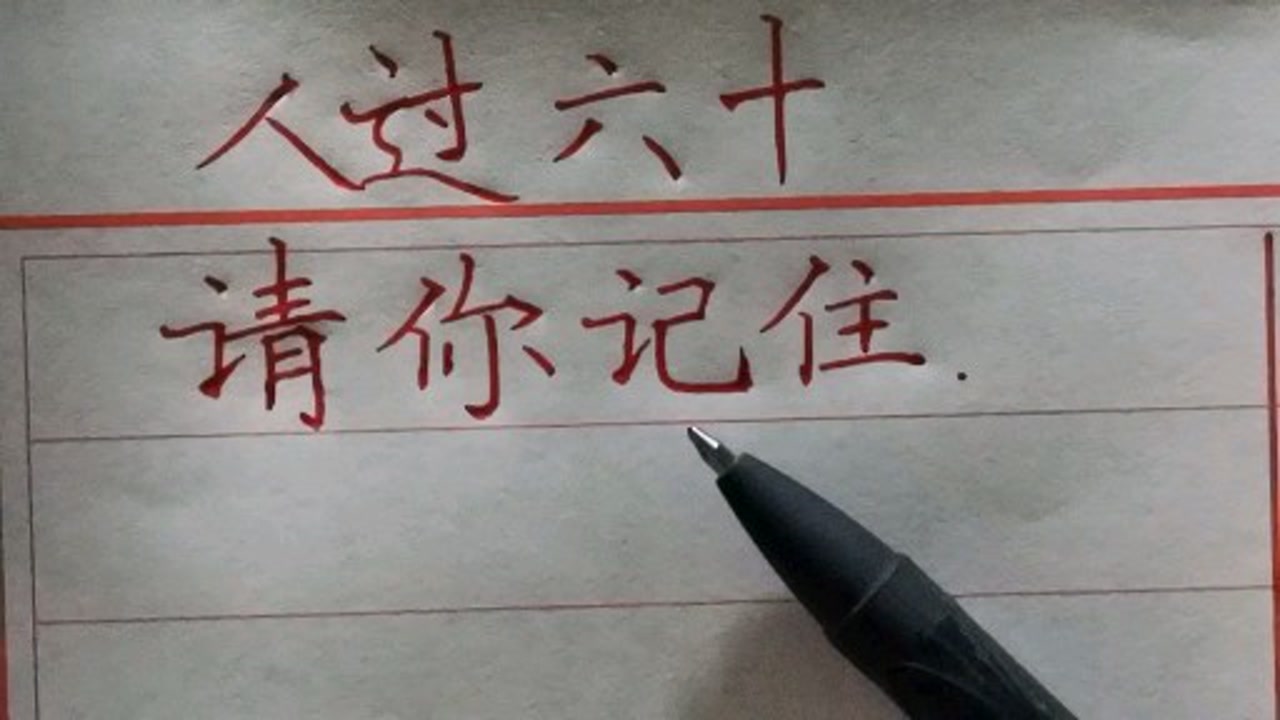 人过六十
请你记住.